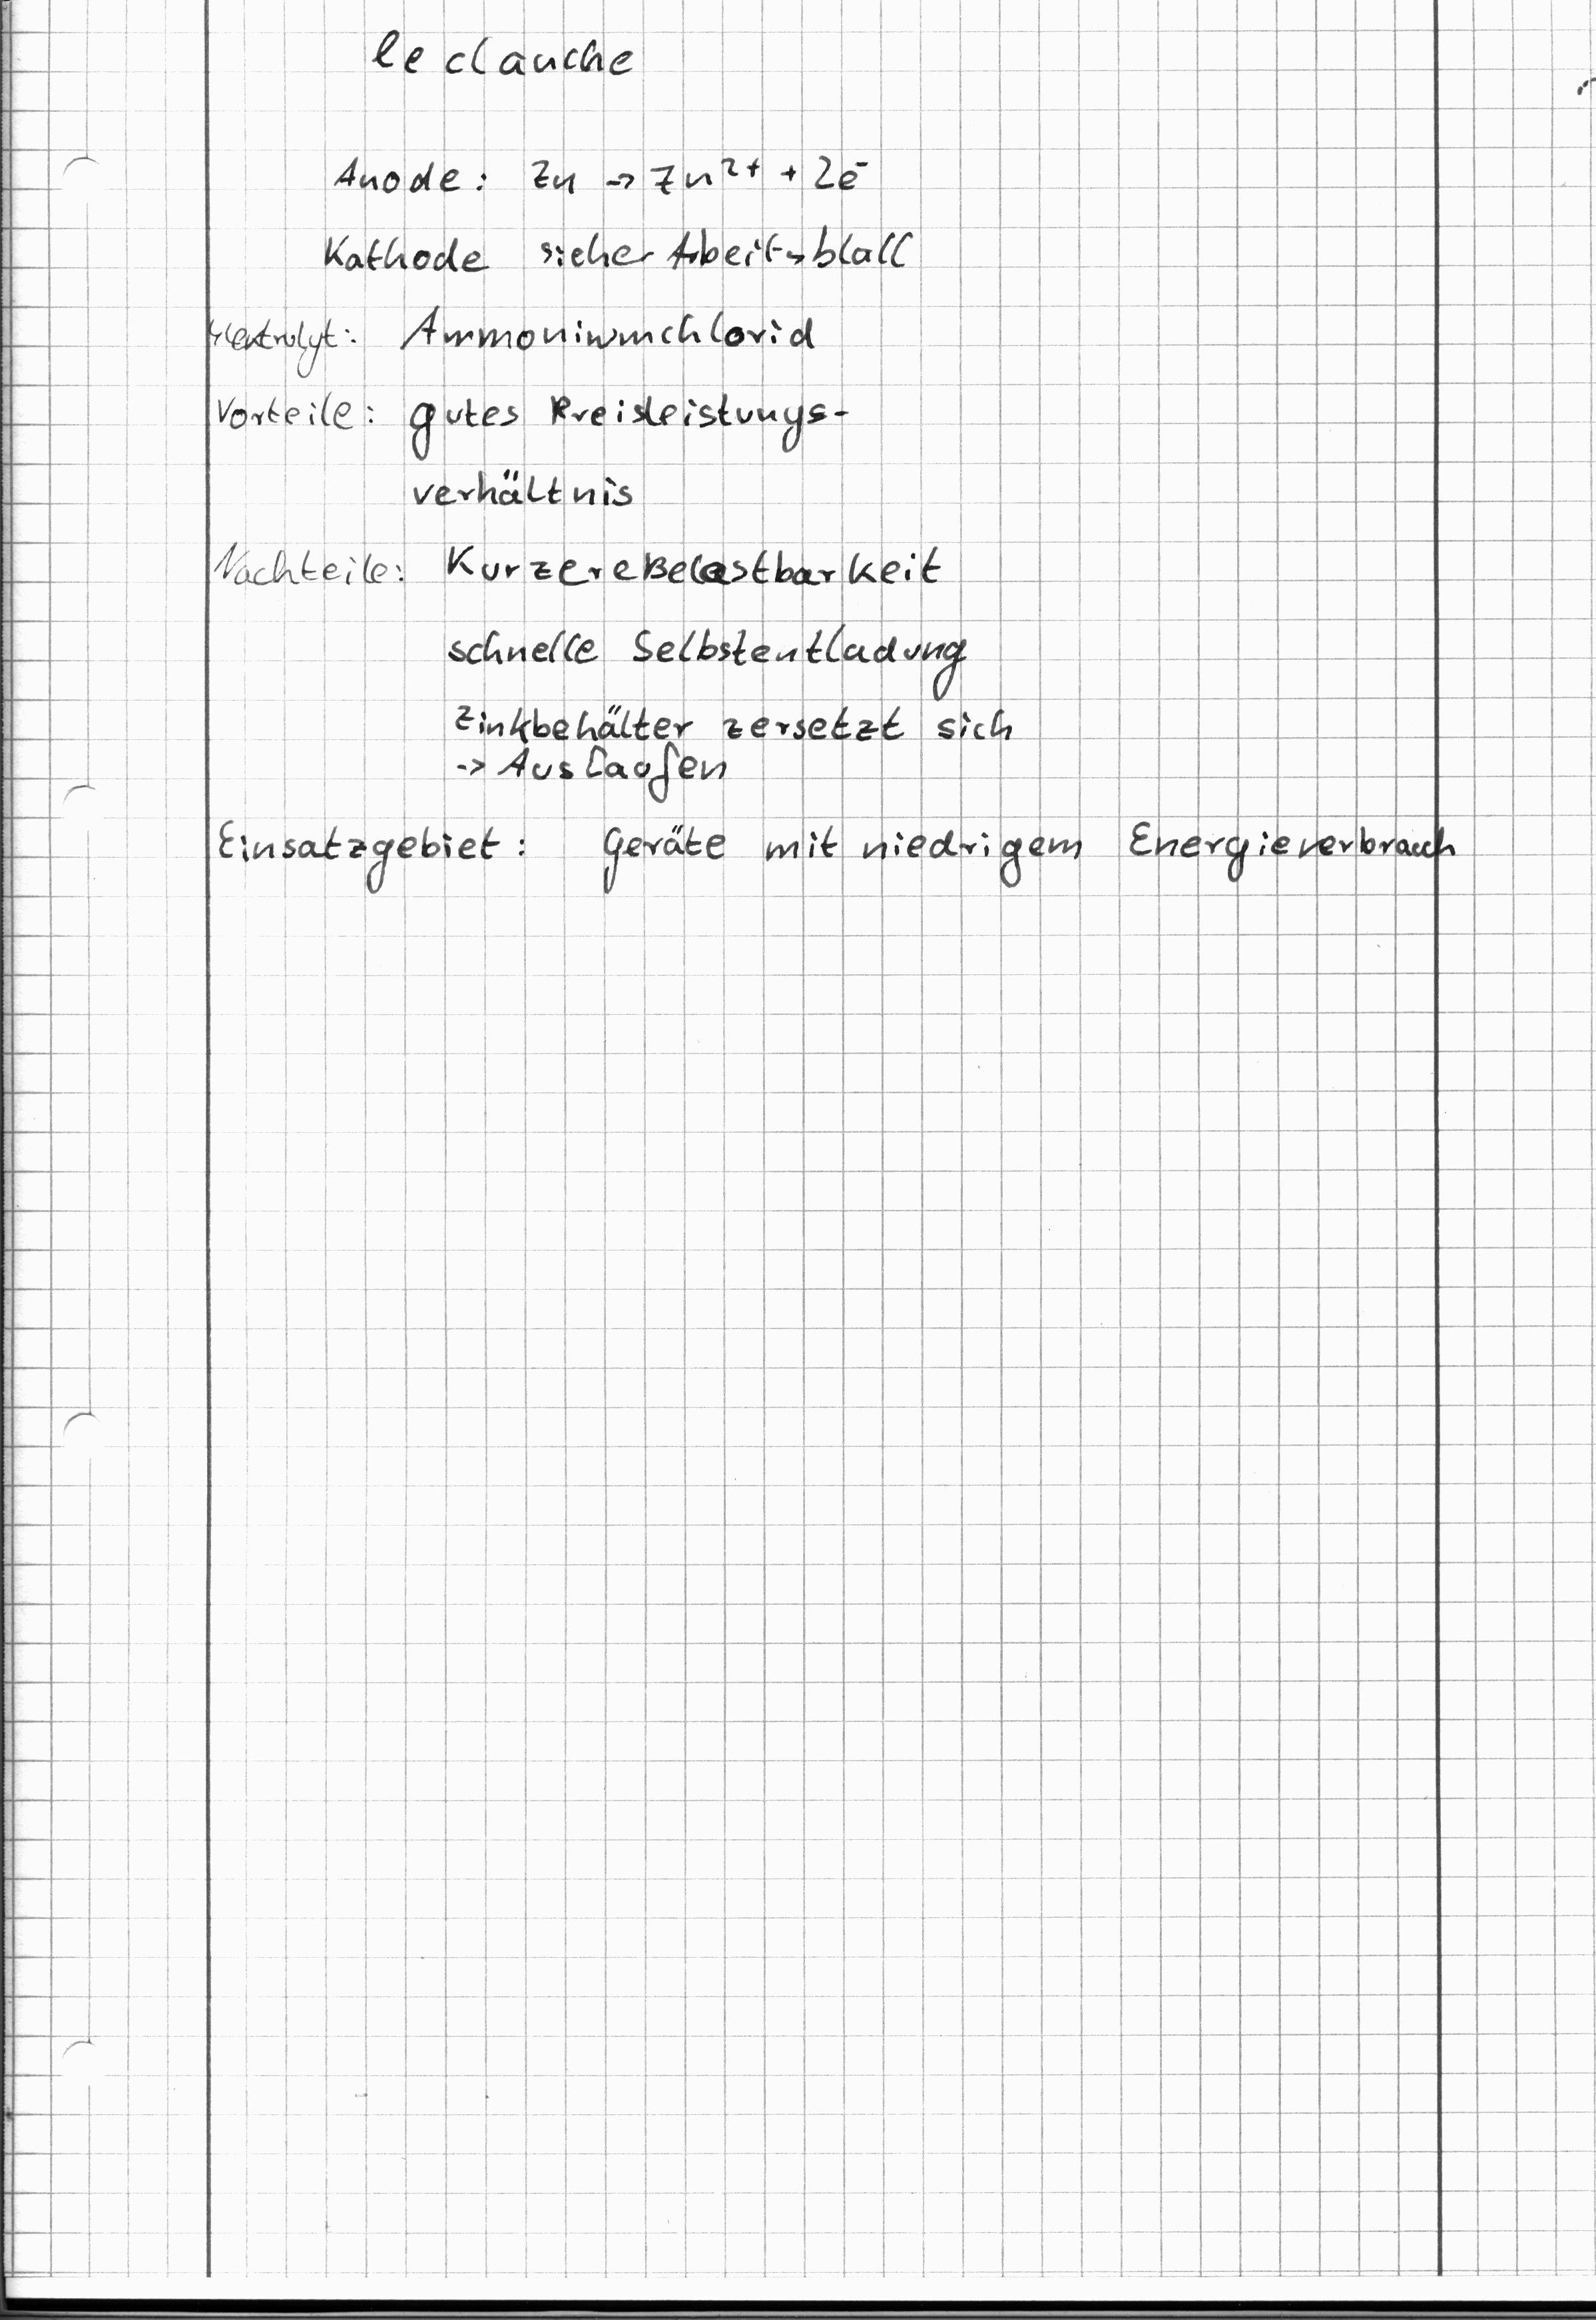 le clanche
Anode: Zn -> Zn²⁺ + 2e⁻
Kathode sieher Arbeitsblatt
Elektrolyt: Ammoniumchlorid
Vorteile: gutes Preisleistungs-
verhältnis
Nachteile: Kurzere Belastbarkeit
schnelle Selbstentladung
Zinkbehälter zersetzt sich
-> Auslaufen
Einsatzgebiet: Geräte mit niedrigem Energieverbrauch